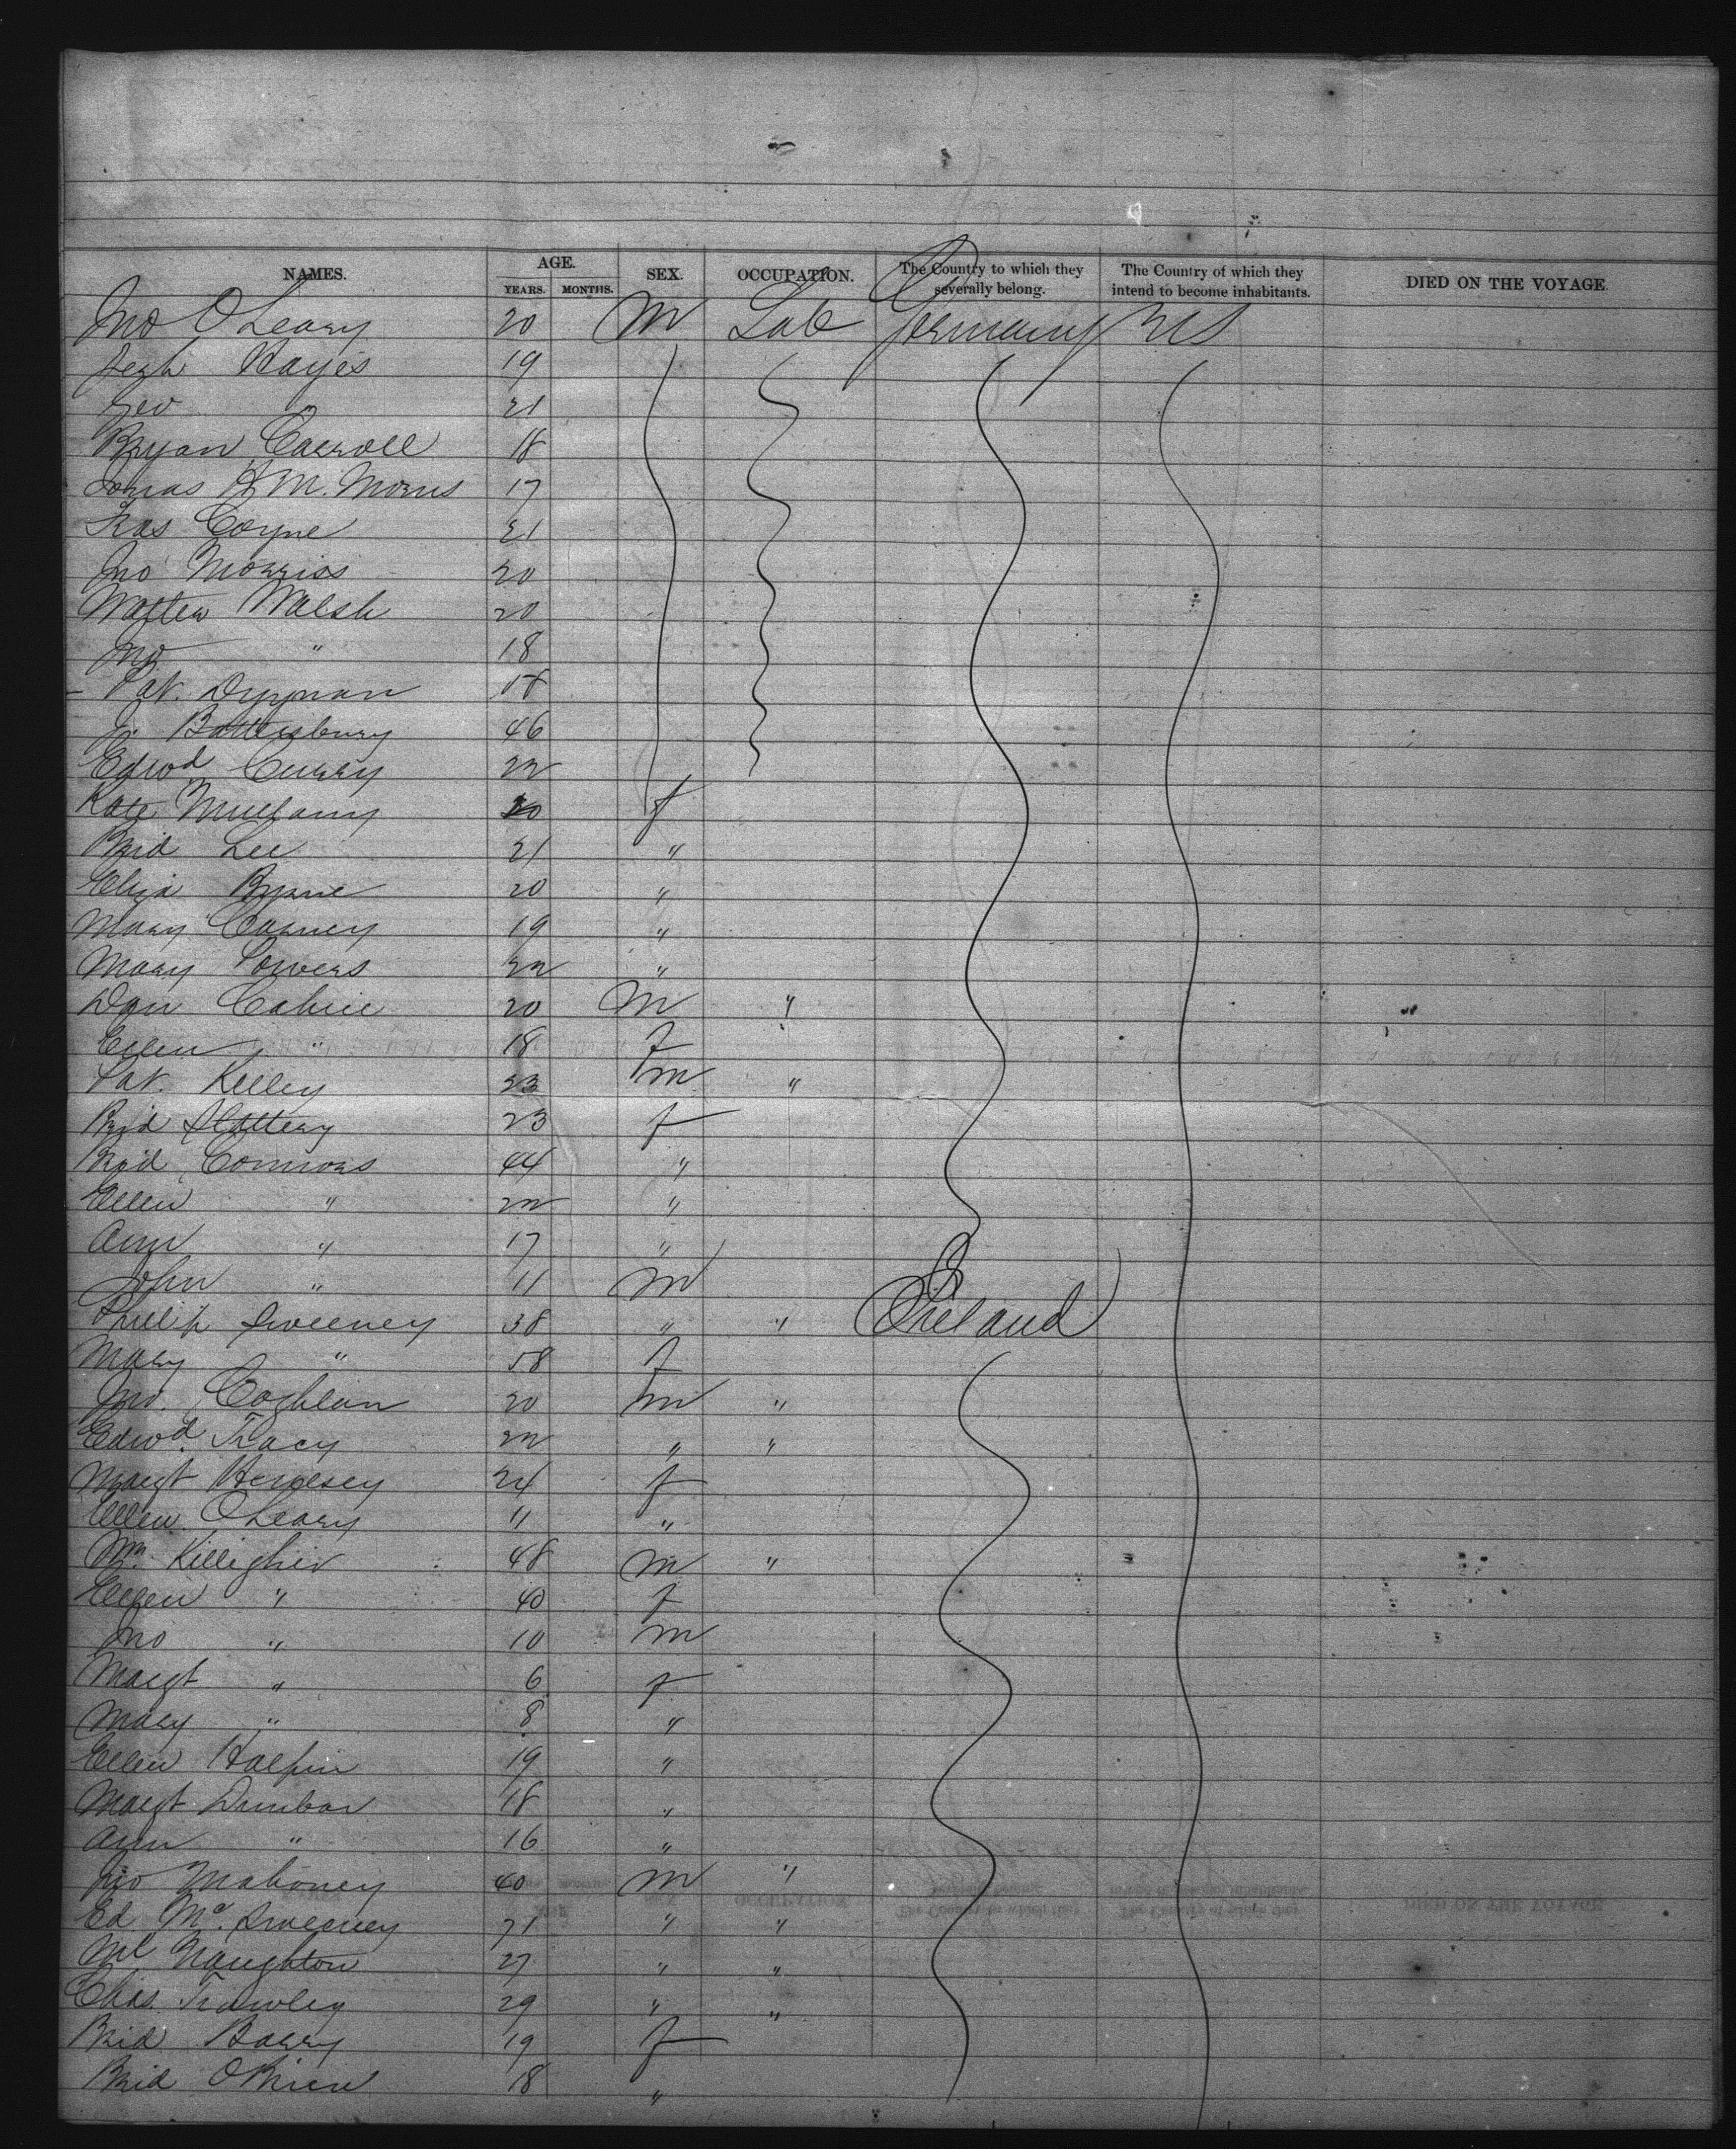 NAMES. AGE. YEARS. MONTHS. SEX. OCCUPATION. The Country to which they severally belong. The Country of which they intend to become inhabitants. DIED ON THE VOYAGE.
Jno O'Leary 20 M Lab Germany US
Hayes 19
Geo " 21
Bryan Carroll 18
H M. Morris 17
Coyne 21
Jno Morriss 20
Walter Walsh 20
Jno " 18
Pat. 18
J. Battersbury 46
Edwd Curry 22
Kate Mullany 20 f
Brid Lee 21 "
Eliza Byrne 20 "
Mary Carney 19 "
Mary Powers 22 "
Dan Cahill 20 M "
Ellen " 18 f
Pat. Kelley 23 m "
Brid Slattery 23 f
Brid Connors 44 "
Ellen " 22 "
Ann " 17 "
John " 11 M
Phillip Sweeney 38 " " Ireland
Mary " 58 f
Jno. Coghlan 20 m "
Edwd. Tracy 22 " "
Margt 24 f
Ellen O'Leary 11 "
Wm. 48 m "
Ellen " 40 f
Jno " 10 m
Margt " 6 f
Mary " 8 "
Ellen Halpin 19 "
Margt Dunbar 18 "
Ann " 16 "
Jno Mahoney 40 m "
Ed Mc. Sweeney 21 " "
Ml Naughton 27 " "
Chas. 29 " "
Brid Barry 19 f
Brid OBrien 18 "